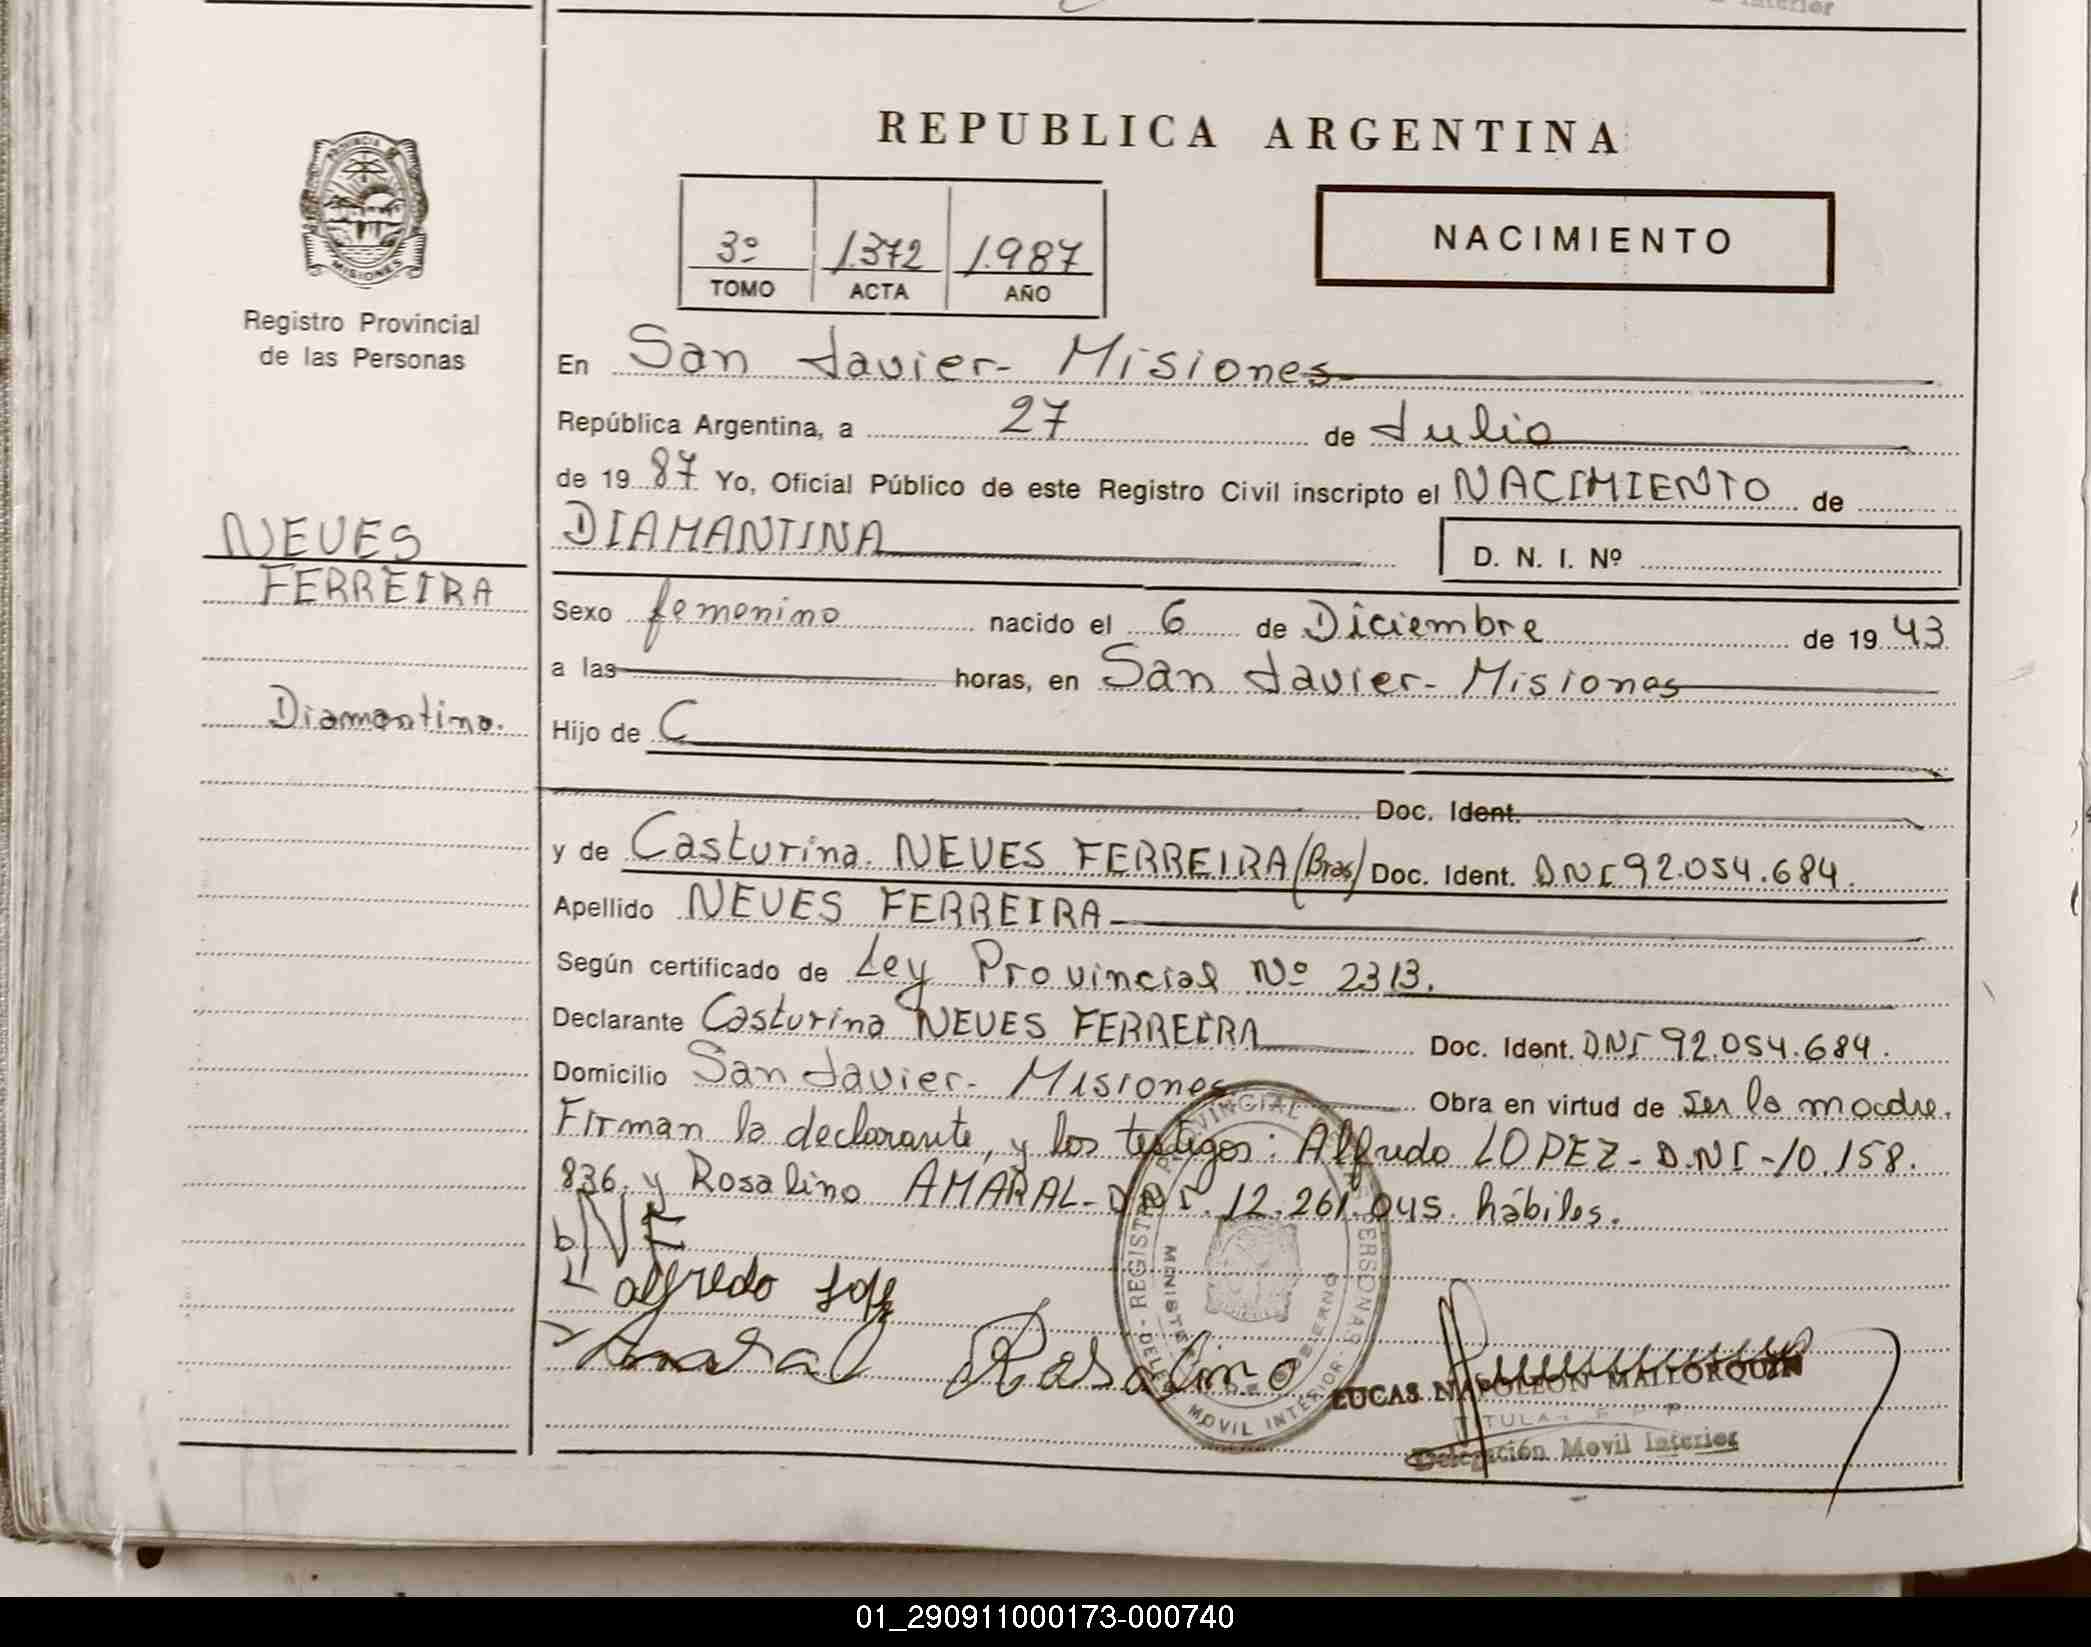 Interior
REPUBLICA ARGENTINA
PROVINCIA DE MISIONES
Registro Provincial
de las Personas
3º 1.372 1.987
TOMO ACTA AÑO
NACIMIENTO
En San Javier - Misiones
República Argentina, a 27 de Julio
de 1987 Yo, Oficial Público de este Registro Civil inscripto el NACIMIENTO de
NEVES
FERREIRA
Diamantina.
DIAMANTINA D. N. I. Nº
Sexo femenino nacido el 6 de Diciembre de 1943
a las horas, en San Javier - Misiones
Hijo de C
Doc. Ident.
y de Casturina NEVES FERREIRA (Bras) Doc. Ident. DNI 92.054.684.
Apellido NEVES FERREIRA
Según certificado de Ley Provincial Nº 2313.
Declarante Casturina NEVES FERREIRA Doc. Ident. DNI 92.054.684.
Domicilio San Javier - Misiones Obra en virtud de ser la madre.
Firman la declarante, y los testigos: Alfredo LOPEZ - D.NI - 10.158.
836. y Rosalino AMARAL - DNI. 12.261.045. hábiles.
NF
alfredo Lopez
Amaral Rosalino
REGISTRO PROVINCIAL PERSONAS
MOVIL INTERIOR
LUCAS NAPOLEON MALLORQUIN
TITULAR
Delegación Movil Interior
01_290911000173-000740